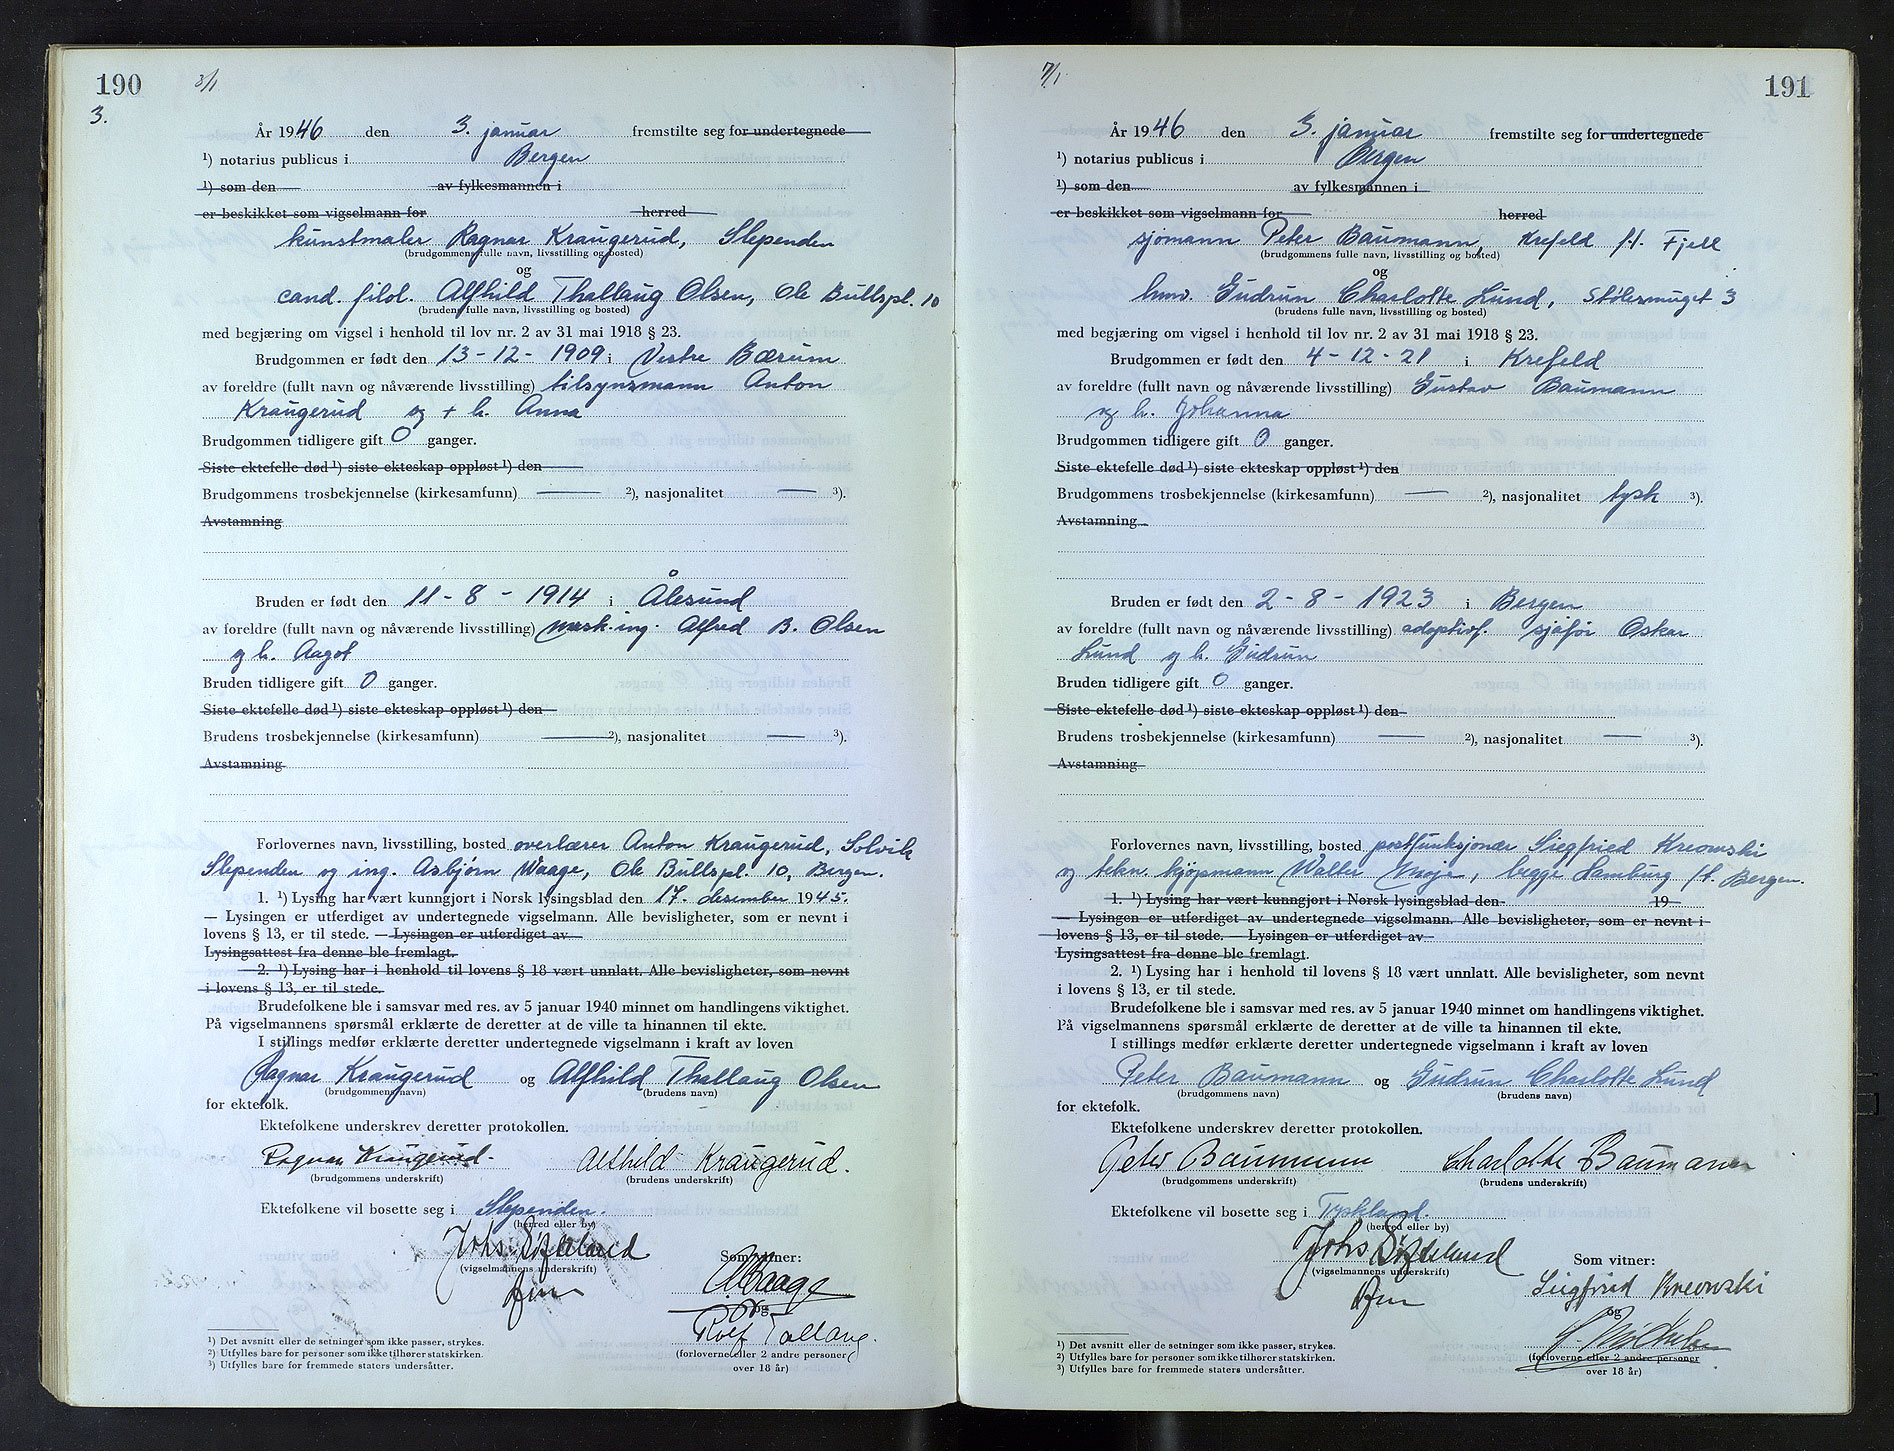 190
3/1
3.
År 1946 den 3. januar fremstilte seg for undertegnede
¹) notarius publicus i Bergen
¹) som den av fylkesmannen i
er beskikket som vigselmann for herred
kunstmaler Ragnar Kraugerud, Slependen
(brudgommens fulle navn, livsstilling og bosted)
og
cand. filol. Alfhild Thallaug Olsen, Ole Bullspl. 10
(brudens fulle navn, livsstilling og bosted)
med begjæring om vigsel i henhold til lov nr. 2 av 31 mai 1918 § 23.
Brudgommen er født den 13-12-1909 i Vestre Bærum
av foreldre (fullt navn og nåværende livsstilling) tilsynsmann Anton
Kraugerud og + h. Anna
Brudgommen tidligere gift 0 ganger.
Siste ektefelle død ¹) siste ekteskap oppløst ¹) den
Brudgommens trosbekjennelse (kirkesamfunn) — ²), nasjonalitet — ³).
Avstamning
Bruden er født den 11-8-1914 i Ålesund
av foreldre (fullt navn og nåværende livsstilling) mask.ing. Alfred B. Olsen
og h. Aagot
Bruden tidligere gift 0 ganger.
Siste ektefelle død ¹) siste ekteskap oppløst ¹) den
Brudens trosbekjennelse (kirkesamfunn) — ²), nasjonalitet — ³).
Avstamning
Forlovernes navn, livsstilling, bosted overlærer Anton Kraugerud, Solvik
Slependen og ing. Asbjørn Waage, Ole Bullspl. 10, Bergen.
1. ¹) Lysing har vært kunngjort i Norsk lysingsblad den 17. desember 1945.
— Lysingen er utferdiget av undertegnede vigselmann. Alle bevisligheter, som er nevnt i
lovens § 13, er til stede. — Lysingen er utferdiget av
Lysingsattest fra denne ble fremlagt.
2. ¹) Lysing har i henhold til lovens § 18 vært unnlatt. Alle bevisligheter, som nevnt
i lovens § 13, er til stede.
Brudefolkene ble i samsvar med res. av 5 januar 1940 minnet om handlingens viktighet.
På vigselmannens spørsmål erklærte de deretter at de ville ta hinannen til ekte.
I stillings medfør erklærte deretter undertegnede vigselmann i kraft av loven
Ragnar Kraugerud og Alfhild Thallaug Olsen
(brudgommens navn) (brudens navn)
for ektefolk.
Ektefolkene underskrev deretter protokollen.
Ragnar Kraugerud. Alfhild Kraugerud.
(brudgommens underskrift) (brudens underskrift)
Ektefolkene vil bosette seg i Slependen.
(herred eller by)
Johs
(vigselmannens underskrift)
Som vitner:
A. Waage
og
Rolf Tallaug.
(forloverne eller 2 andre personer
over 18 år)
¹) Det avsnitt eller de setninger som ikke passer, strykes.
²) Utfylles bare for personer som ikke tilhører statskirken.
³) Utfylles bare for fremmede staters undersåtter.
191
7/1
År 1946 den 3. januar fremstilte seg for undertegnede
¹) notarius publicus i Bergen
¹) som den av fylkesmannen i
er beskikket som vigselmann for herred
sjømann Peter Baumann, Krefeld f.t. Fjell
(brudgommens fulle navn, livsstilling og bosted)
og
husv. Gudrun Charlotte Lund, Stølesmuget 3
(brudens fulle navn, livsstilling og bosted)
med begjæring om vigsel i henhold til lov nr. 2 av 31 mai 1918 § 23.
Brudgommen er født den 4-12-21 i Krefeld
av foreldre (fullt navn og nåværende livsstilling) Gustav Baumann
og h. Johanna
Brudgommen tidligere gift 0 ganger.
Siste ektefelle død ¹) siste ekteskap oppløst ¹) den
Brudgommens trosbekjennelse (kirkesamfunn) — ²), nasjonalitet tysk ³).
Avstamning
Bruden er født den 2-8-1923 i Bergen
av foreldre (fullt navn og nåværende livsstilling) adoptivf. sjåfør Oskar
Lund og h. Gudrun
Bruden tidligere gift 0 ganger.
Siste ektefelle død ¹) siste ekteskap oppløst ¹) den
Brudens trosbekjennelse (kirkesamfunn) — ²), nasjonalitet — ³).
Avstamning
Forlovernes navn, livsstilling, bosted postfunksjonær Siegfried Kreowski
og tekn. kjøpmann Walter, begge Hamburg f.t. Bergen.
1. ¹) Lysing har vært kunngjort i Norsk lysingsblad den 19
— Lysingen er utferdiget av undertegnede vigselmann. Alle bevisligheter, som er nevnt i
lovens § 13, er til stede. — Lysingen er utferdiget av
Lysingsattest fra denne ble fremlagt.
2. ¹) Lysing har i henhold til lovens § 18 vært unnlatt. Alle bevisligheter, som nevnt
i lovens § 13, er til stede.
Brudefolkene ble i samsvar med res. av 5 januar 1940 minnet om handlingens viktighet.
På vigselmannens spørsmål erklærte de deretter at de ville ta hinannen til ekte.
I stillings medfør erklærte deretter undertegnede vigselmann i kraft av loven
Peter Baumann og Gudrun Charlotte Lund
(brudgommens navn) (brudens navn)
for ektefolk.
Ektefolkene underskrev deretter protokollen.
Peter Baumann Charlotte Baumann
(brudgommens underskrift) (brudens underskrift)
Ektefolkene vil bosette seg i Tyskland.
(herred eller by)
Johs
(vigselmannens underskrift)
Som vitner:
Siegfried Kreowski
og
(forloverne eller 2 andre personer
over 18 år)
¹) Det avsnitt eller de setninger som ikke passer, strykes.
²) Utfylles bare for personer som ikke tilhører statskirken.
³) Utfylles bare for fremmede staters undersåtter.